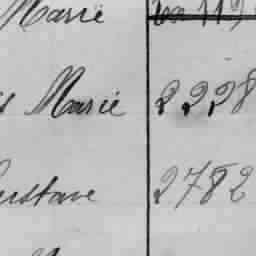 Marie
Marie 2228
ustave 2782